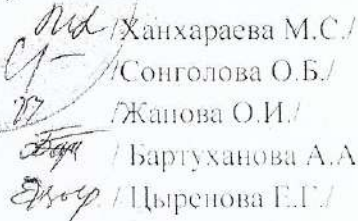 /Ханхараева М.С./
/Сонголова О.Б./
/Жапова О.И./
/Бартуханова А.А
/Цыренова Е.Г./